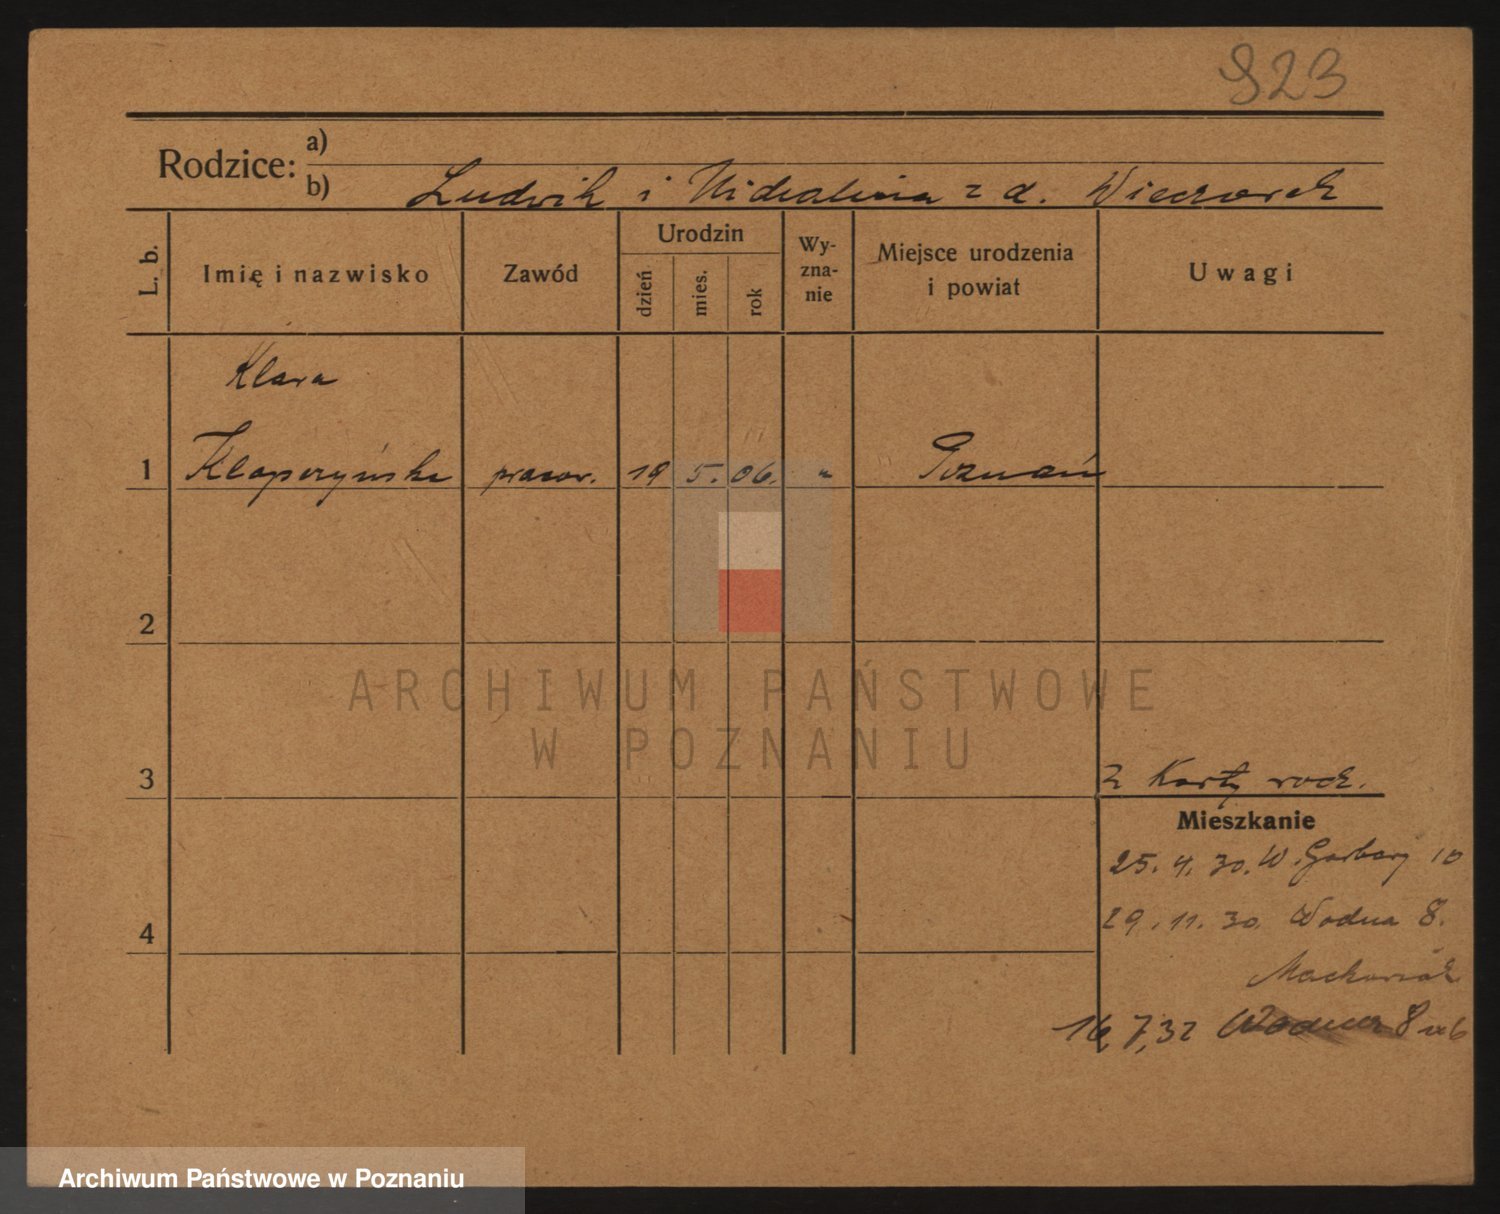 923
Rodzice: a)
b) Ludwik i z d. Wieczorek
L. b. Imię i nazwisko Zawód Urodzin dzień mies. rok Wy-zna-nie Miejsce urodzenia i powiat Uwagi
Klara
1 Kłopczyńska pracow. 19 5. 06. " Poznań
2
ARCHIWUM PAŃSTWOWE
W POZNANIU
3 z Karty rodz.
Mieszkanie
25. 4. 30. W. Garbary 10
29. 11. 30. Wodna 8.
4
16, 7, 32 Wodna 8 m 6
Archiwum Państwowe w Poznaniu